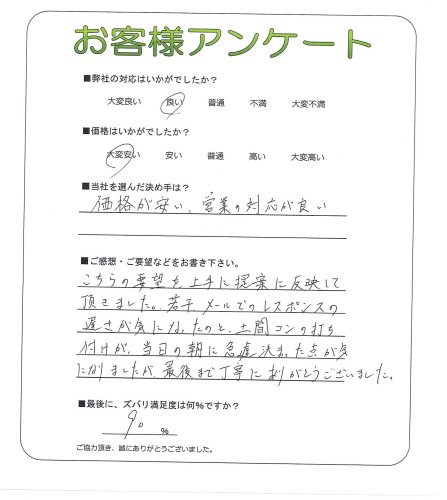 お客様アンケート
■弊社の対応はいかがでしたか？
大変良い 良い 普通 不満 大変不満
■価格はいかがでしたか？
大変安い 安い 普通 高い 大変高い
■当社を選んだ決め手は？
価格が安い、営業の対応が良い
■ご感想・ご要望などをお書き下さい。
こちらの要望を上手に提案に反映して
頂きました。若干メールでのレスポンスの
遅さが気になったのと、土間コンの打ち
付けが、当日の朝に急遽決まった点が気
になりましたが、最後まで丁寧にありがとうございました。
■最後に、ズバリ満足度は何%ですか？
90 %
ご協力頂き、誠にありがとうございました。